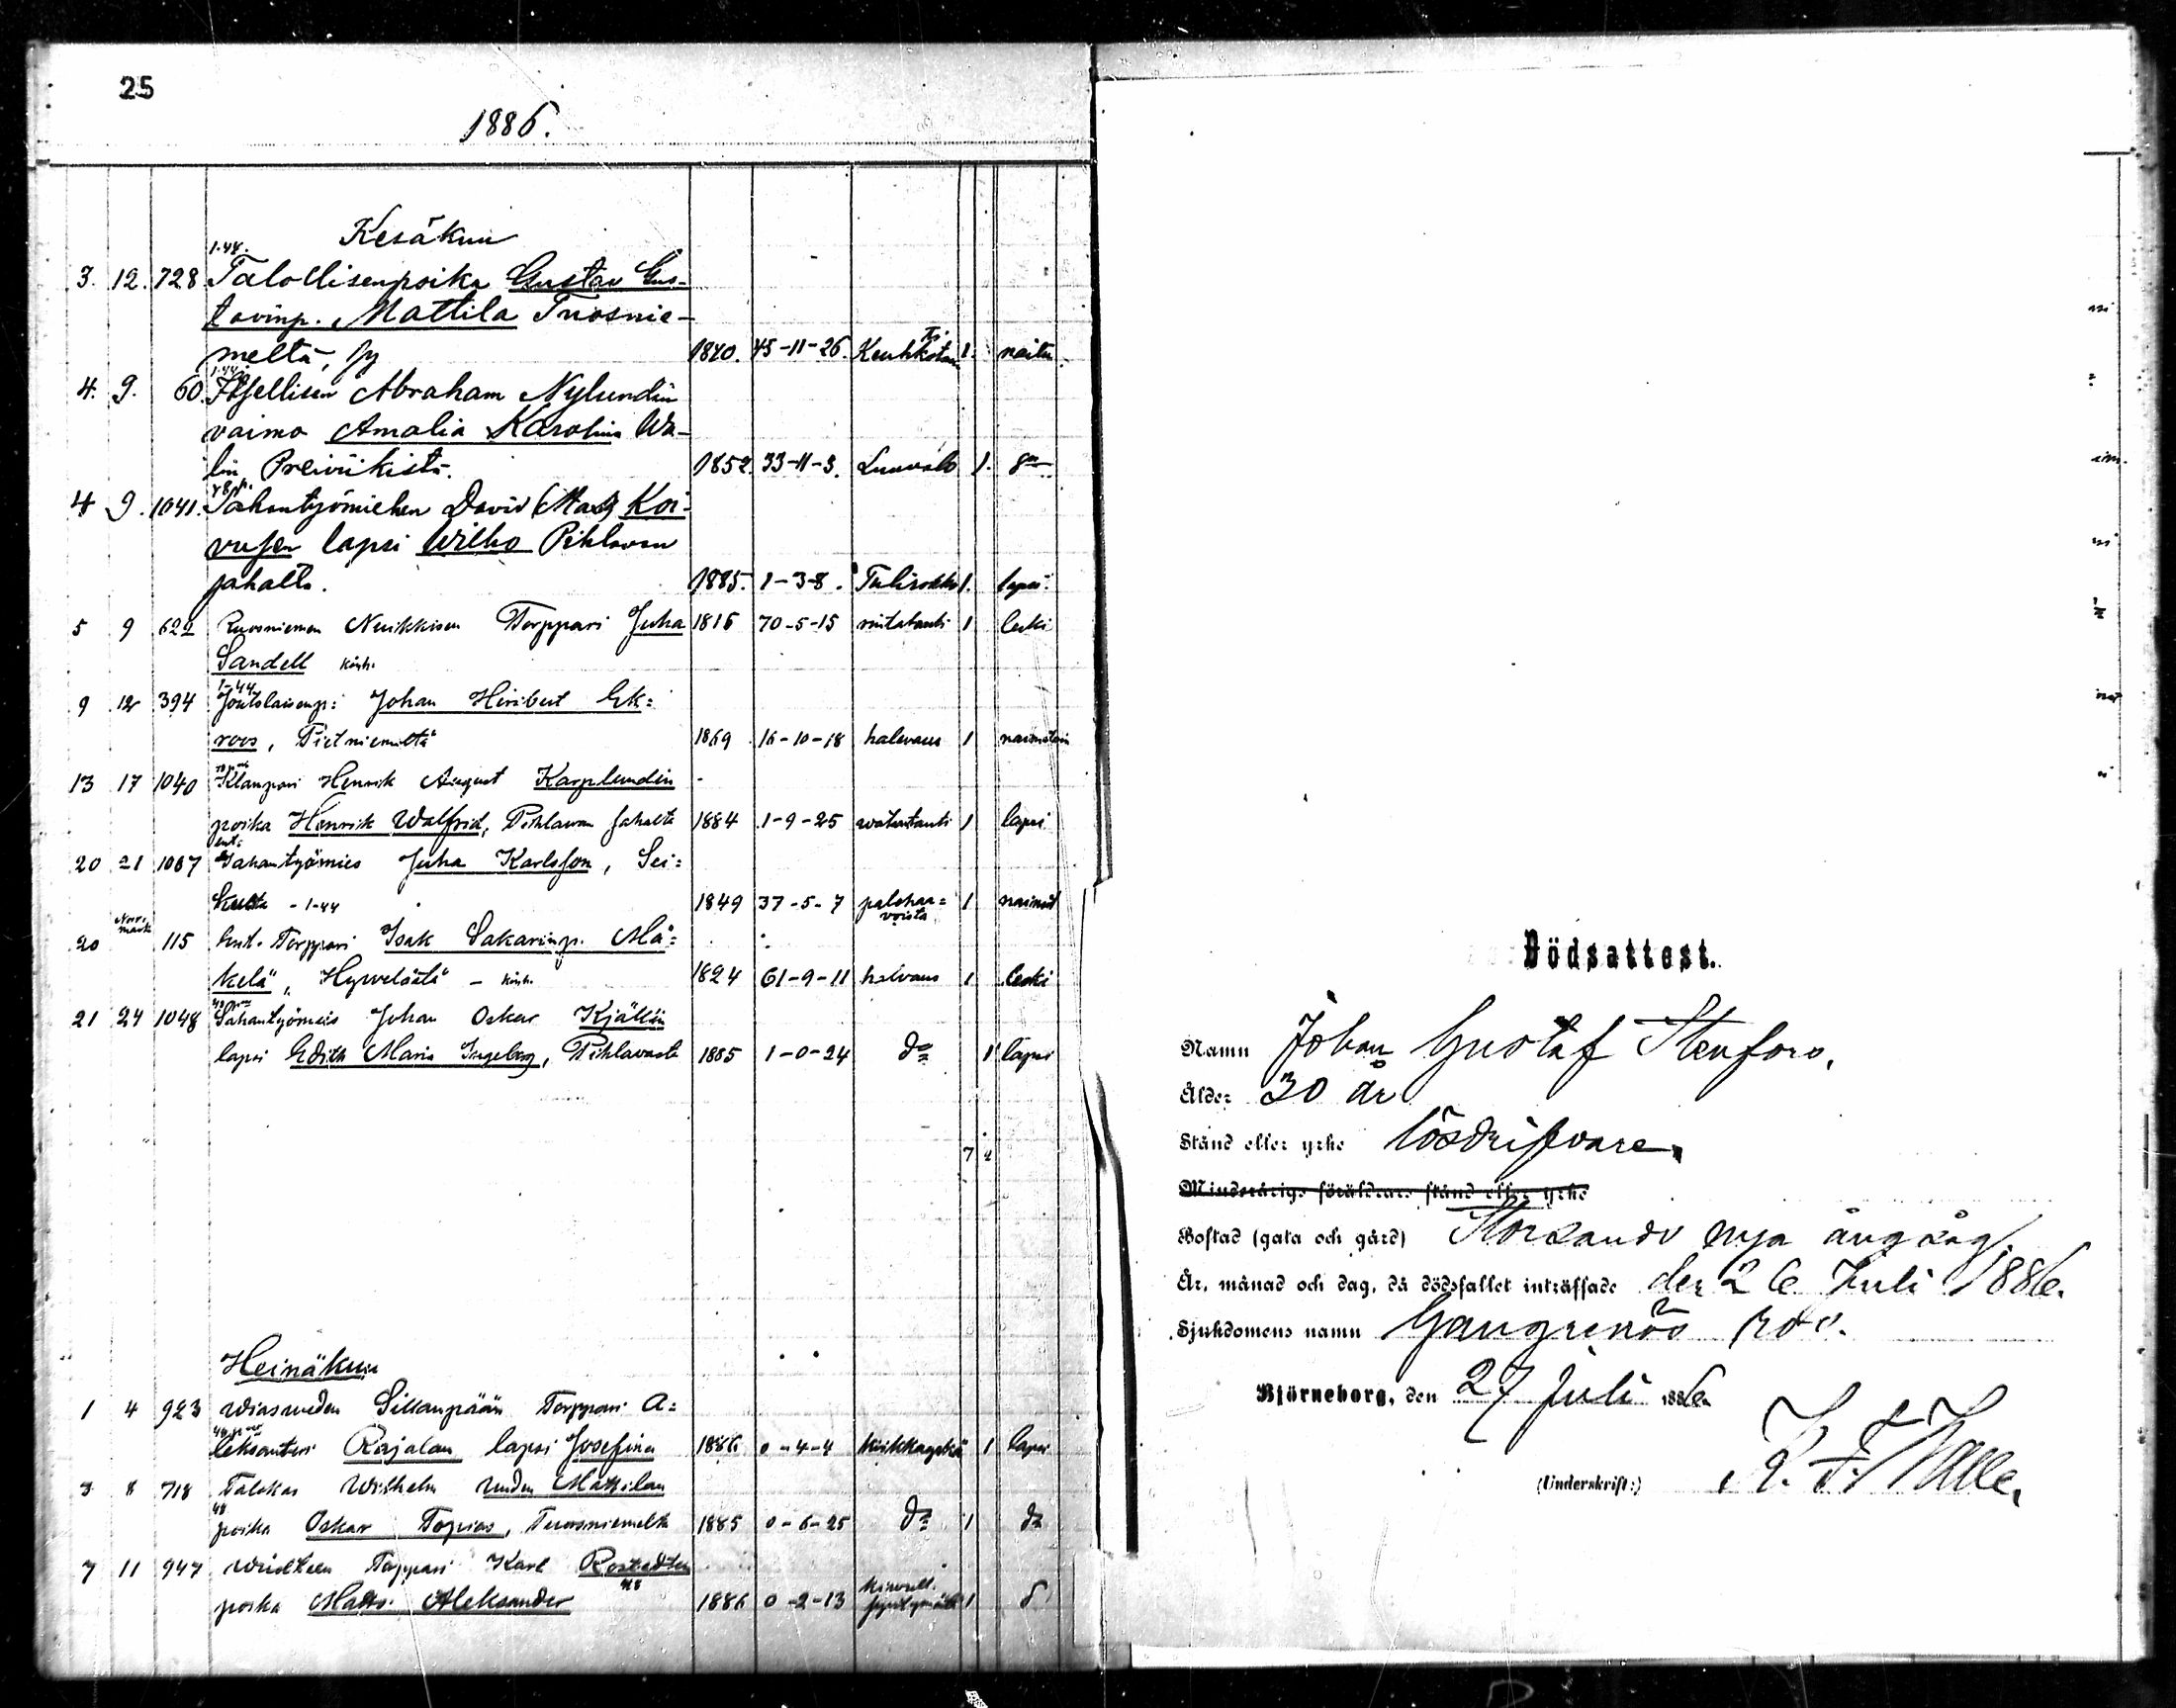 25
1886.
Kesäkuu
1-44.
3. 12. 728 Talollisenpoika Gustav Gus-
tavinp. Mattila Tuosnie-
meltä, 1840. 45-11-26. Keuhkotauti 1. naitu
4. 9. 60. Itsellisen Abraham Nylundin
vaimo Amalia Karolina Wa-
lin Preiviikistä. 1852. 33-11-3. 1.
4 9. 1041. Sahantyömiehen David Koi-
vusen lapsi Wilho Pihlavan
sahalta. 1885. 1-3-8. Tulirokko 1. lapsi
5 9 622 Torppari Juha 1816 70-5-15 rintatauti 1 leski
Sandell
1-44
9 12 394 Johan Heribert Ek=
roos, Pietniemeltä 1869 16-10-18 halvaus 1 naimaton
13 17 1040 Klampari Henrik August Karplundin
poika Henrik Walfrid, Pihlavan sahalta 1884 1-9-25 1 lapsi
ent.
20 21 1067 Sahantyömies Juha Karlsson, Sei=
kusta - 1-44 1849 37-5-7 palohaa=
voista 1 nainut
Norr-
mark
20 115 Ent. Torppari Isak Sakarinp. Mä=
kelä, Hyvelästä - 1824 61-9-11 halvaus 1 leski
21 24 1048 Sahantyömies Johan Oskar Kjällin
lapsi Edith Maria Ingeborg, Pihlavasta 1885 1-0-24 do 1 lapsi
7 4
Heinäkuu
1 4 923 Sillanpään Torppari A=
leksanteri Rajalan lapsi Josefina 1886 0-4-4 hinkkayskä 1 lapsi
3 8 718 Wilhelm uuden Mattilan
48
poika Oskar Topias, Tuorsniemeltä 1885 0-6-25 do 1 do
7 11 947 Torppari Karl
poika Matts Aleksander 1886 0-2-13 1
Dödsattest.
Namn Johan Gustaf Stenfors.
Ålder 30 år
Stånd eller yrke lösdrifvare.
Minderårigs föräldrars stånd eller yrke
Bostad (gata och gård) Storsands nya ångsåg.
År, månad och dag, då dödsfallet inträffade den 26 Juli 1886.
Sjukdomens namn Gangrenös ros.
Björneborg, den 27 Juli 1886
(Underskrift:) K. F.